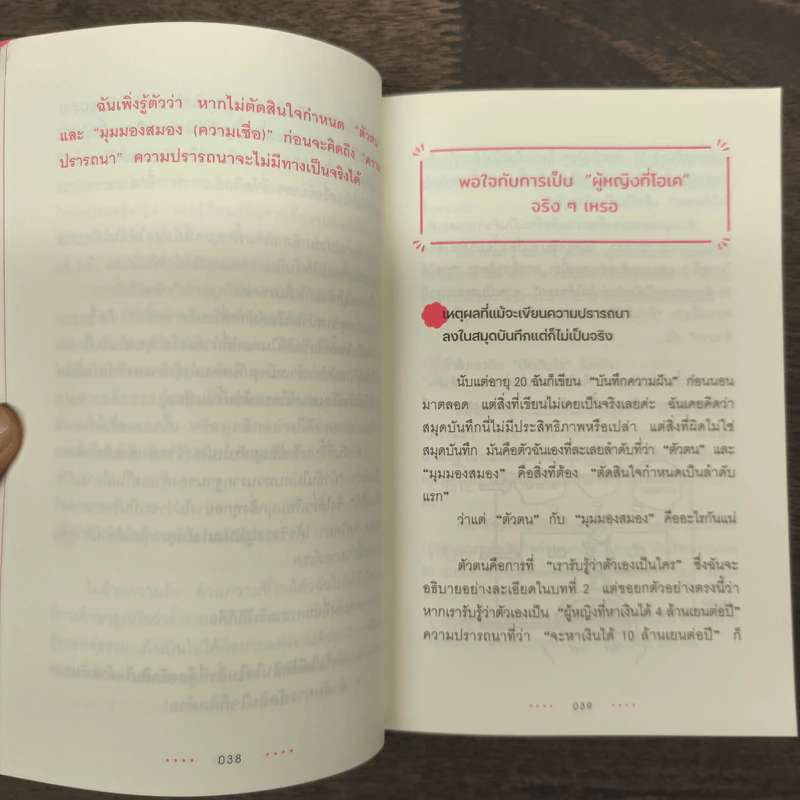 ฉันเพิ่งรู้ตัวว่า หากไม่ตัดสินใจกำหนด "ตัวตน"
และ "มุมมองสมอง (ความเชื่อ)" ก่อนจะคิดถึง "ความ
ปรารถนา" ความปรารถนาจะไม่มีทางเป็นจริงได้
038
พอใจกับการเป็น "ผู้หญิงที่โอเค"
จริง ๆ เหรอ
เหตุผลที่แม้จะเขียนความปรารถนา
ลงในสมุดบันทึกแต่ก็ไม่เป็นจริง
นับแต่อายุ 20 ฉันก็เขียน "บันทึกความฝัน" ก่อนนอน
มาตลอด แต่สิ่งที่เขียนไม่เคยเป็นจริงเลยค่ะ ฉันเคยคิดว่า
สมุดบันทึกนี่ไม่มีประสิทธิภาพหรือเปล่า แต่สิ่งที่ผิดไม่ใช่
สมุดบันทึก มันคือตัวฉันเองที่ละเลยลำดับที่ว่า "ตัวตน" และ
"มุมมองสมอง" คือสิ่งที่ต้อง "ตัดสินใจกำหนดเป็นลำดับ
แรก"
ว่าแต่ "ตัวตน" กับ "มุมมองสมอง" คืออะไรกันแน่
ตัวตนคือการที่ "เรารับรู้ว่าตัวเองเป็นใคร" ซึ่งฉันจะ
อธิบายอย่างละเอียดในบทที่ 2 แต่ขอยกตัวอย่างตรงนี้ว่า
หากเรารับรู้ว่าตัวเองเป็น "ผู้หญิงที่หาเงินได้ 4 ล้านเยนต่อปี"
ความปรารถนาที่ว่า "จะหาเงินได้ 10 ล้านเยนต่อปี" ก็
039